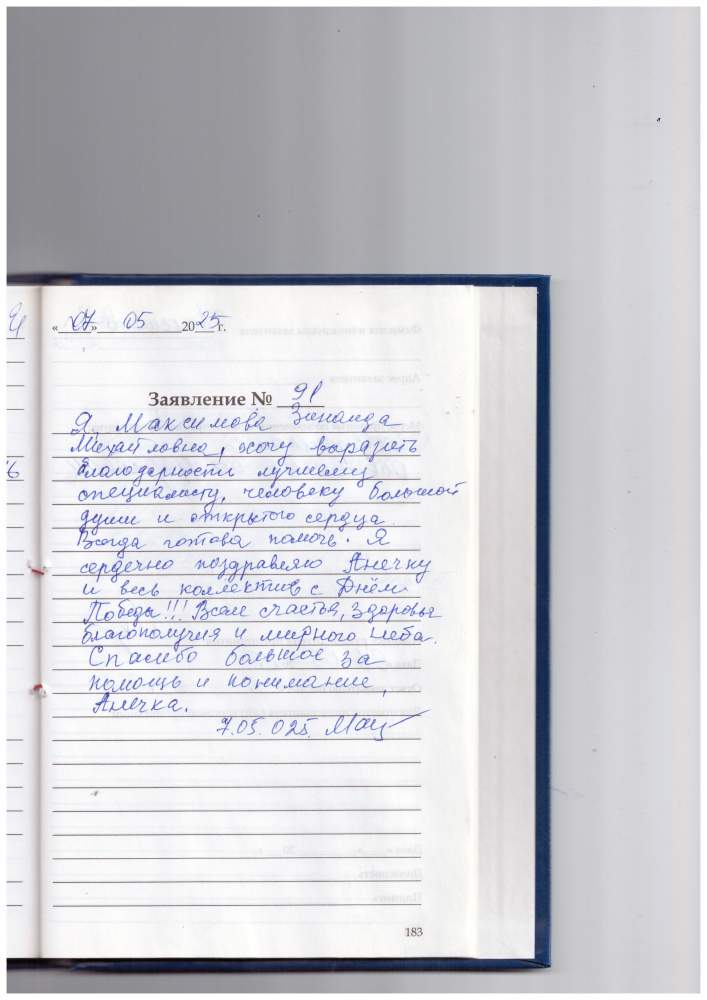 «07» 05 2025 г.
Заявление № 91
Я, Максимова Зинаида
Михайловна, хочу выразить
благодарности лучшему
специалисту, человеку большой
души и открытого сердца.
Всегда готова помочь. Я
сердечно поздравляю Анечку
и весь коллектив с Днём
Победы!!! Всем счастья, здоровья
благополучия и мирного неба.
Спасибо большое за
помощь и понимание,
Анечка.
7.05.025.
183